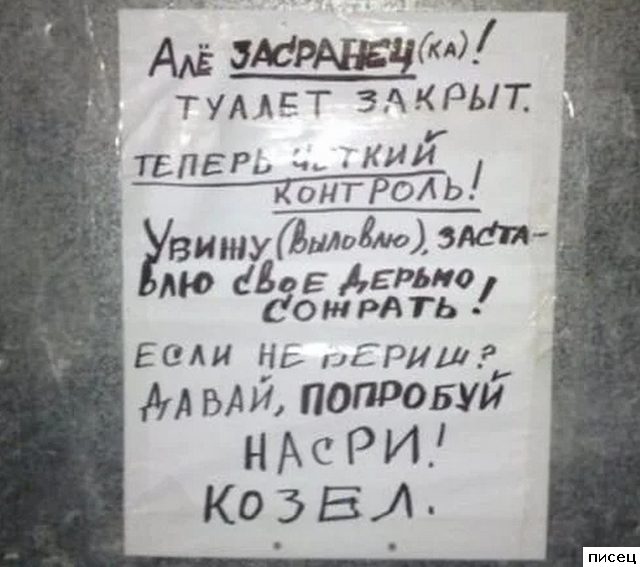 Алё ЗАСРАНЕЦ(КА)!
ТУАЛЕТ ЗАКРЫТ.
ТЕПЕРЬ ЧЁТКИЙ
КОНТРОЛЬ!
Увижу (Выловлю), ЗАСТА-
ВЛЮ СВОЕ ДЕРЬМО
СОЖРАТЬ!
ЕСЛИ НЕ ВЕРИШ?
ДАВАЙ, ПОПРОБУЙ
НАСРИ!
КОЗЕЛ.
писец